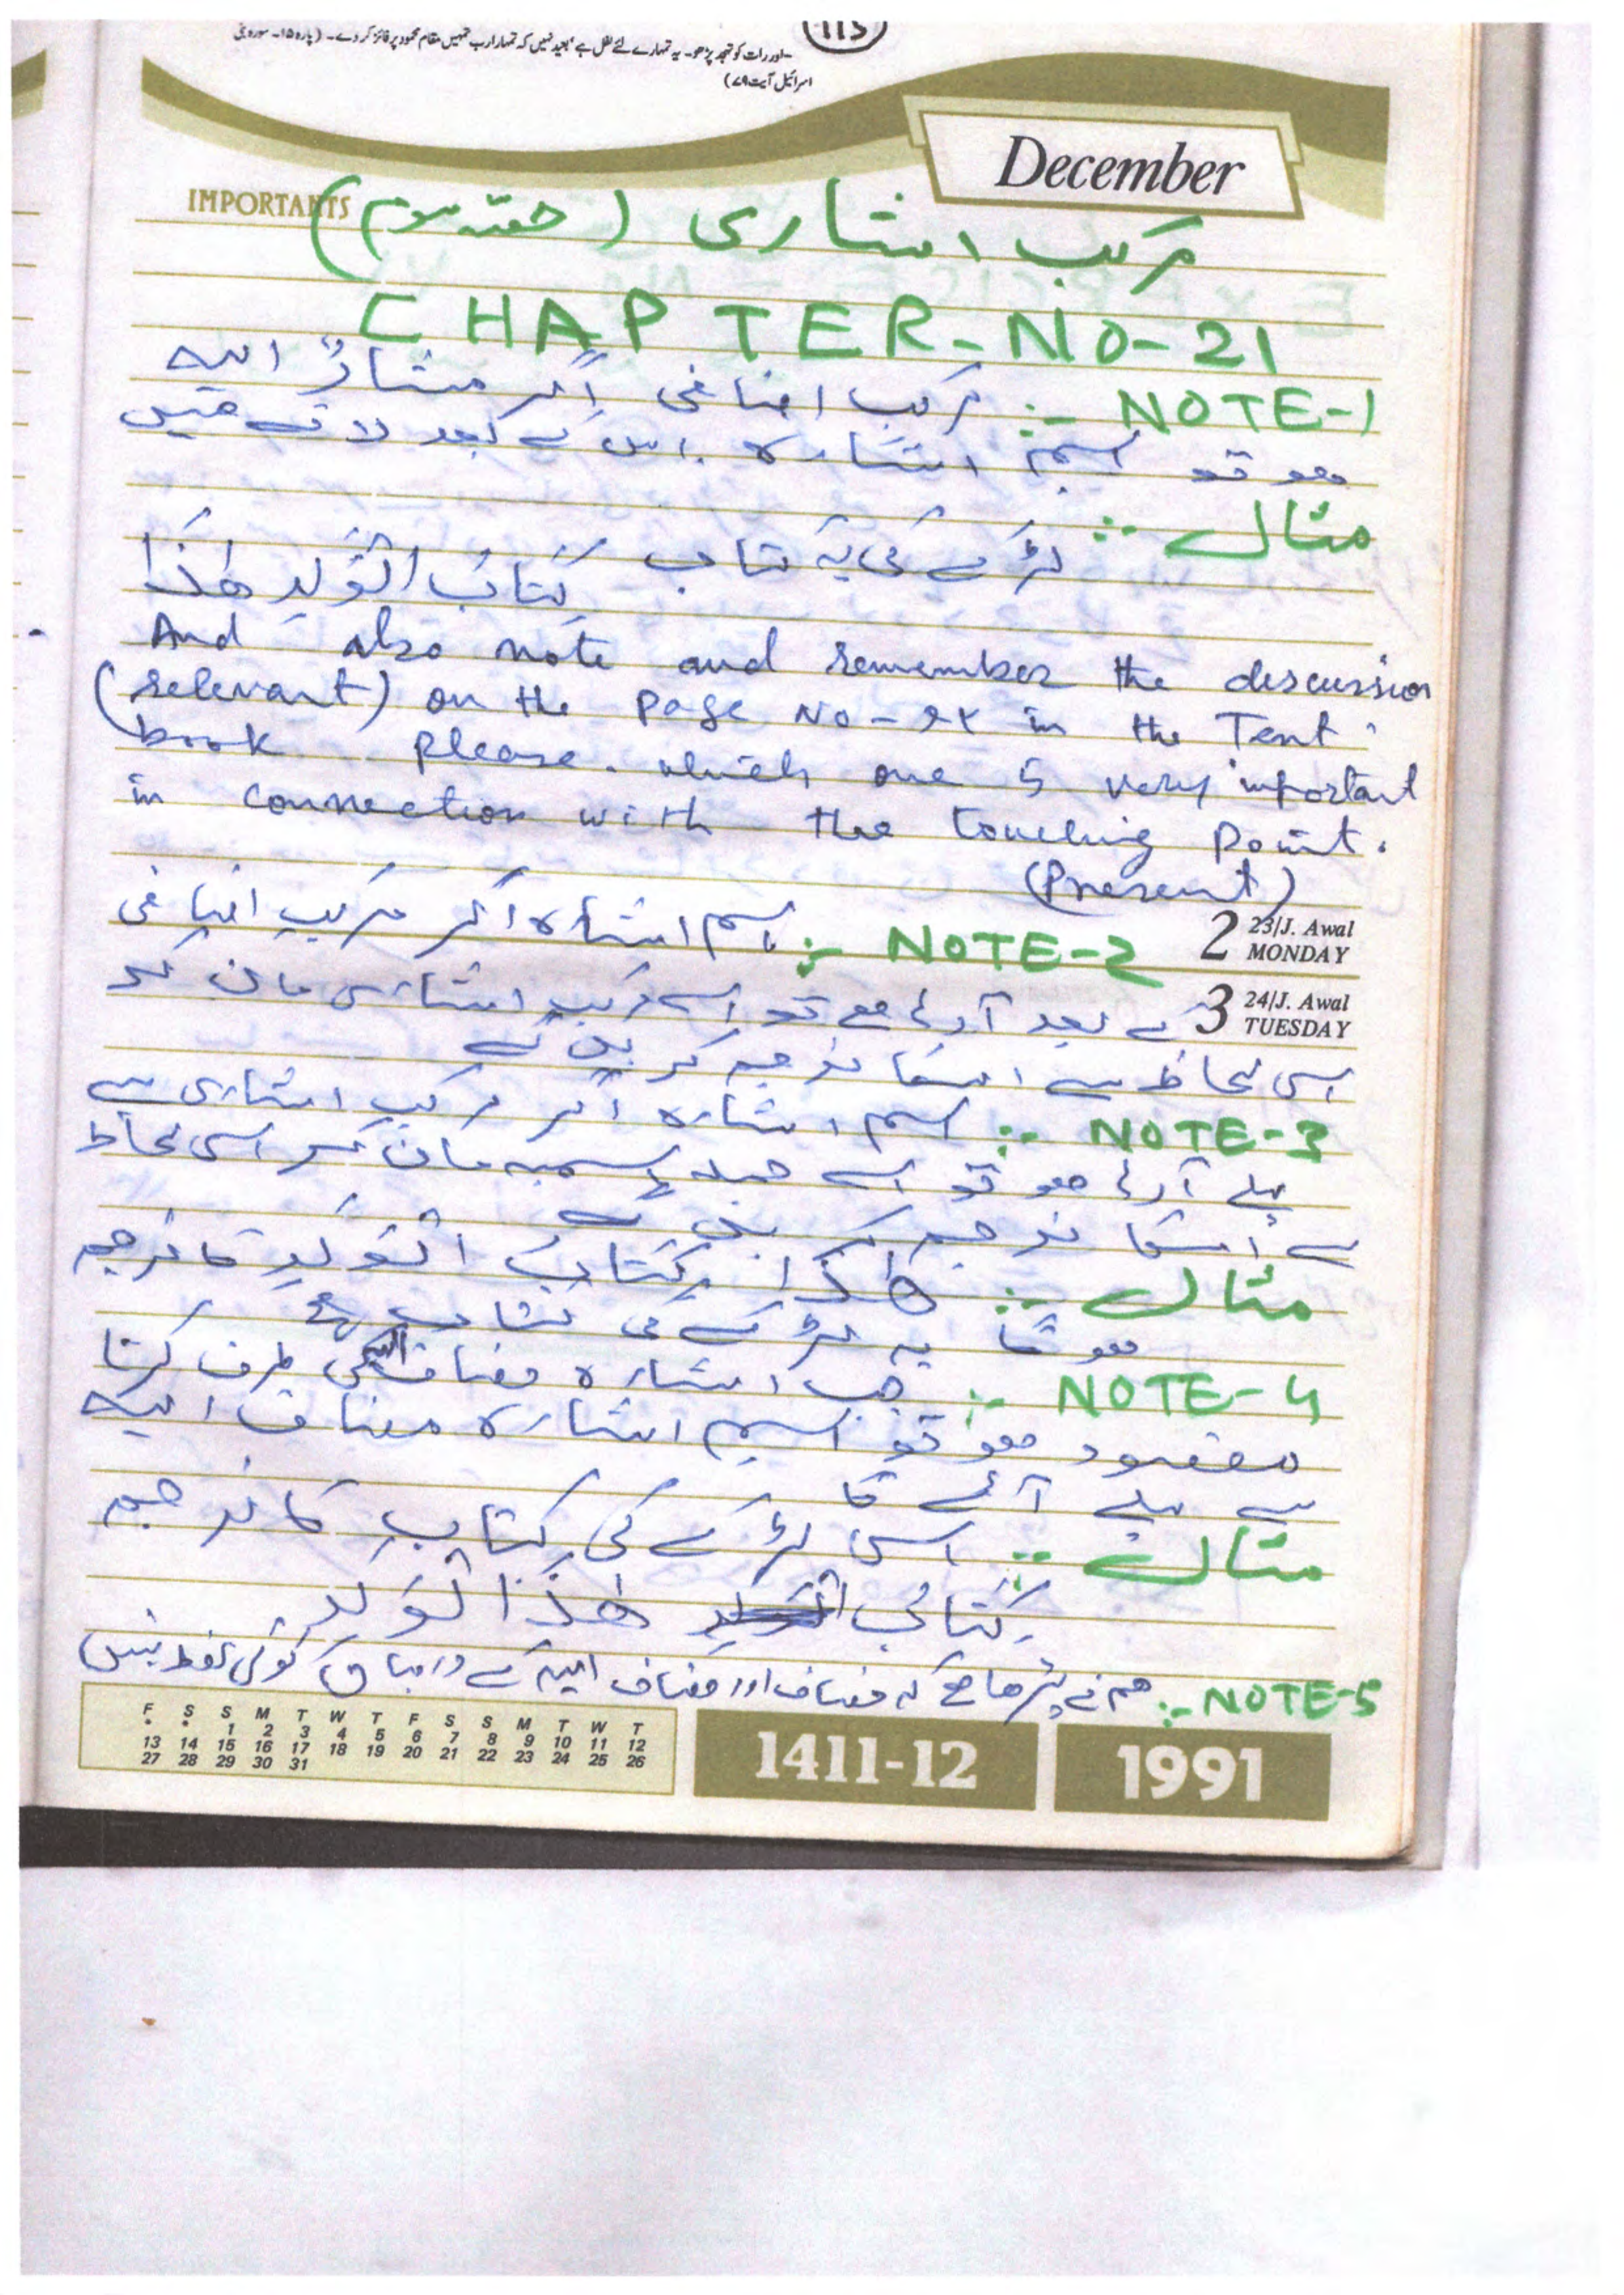 115
-اور رات کو تہجد پڑھو۔ یہ تمہارے لئے نفل ہے 'بعید نہیں کہ تمہارا رب تمہیں مقام محمود پر فائز کر دے۔ (پارہ ۱۵۔ سورہ بنی
اسرائیل آیت ۷۹)
December
IMPORTANTS
مرکب اشاری (حصہ سوم)
CHAPTER-NO-21
NOTE-1 :- مرکب اضافی اگر مشارٌ الیہ
ھو تو اسم اشارہ اس کے بعد لاتے ھیں
مثال :- لڑکے کی یہ کتاب
کِتَابُ الْوَلَدِ ھٰذَا
And also note and remember the discussion
(relevant) on the page No- in the Text
book please. which one is very important
in connection with the touching point.
(Present)
2 23/J. Awal MONDAY
NOTE-2 :- اسم اشارہ اگر مرکب اضافی
3 24/J. Awal TUESDAY
کے بعد آرہا ھے تو اسے مرکب اشاری مان کر
اسی لحاظ سے اسکا ترجمہ کریں گے
NOTE-3 :- اسم اشارہ اگر مرکب اشاری سے
پہلے آرہا ھو تو اسے جملہ اسمیہ مان کر اسی لحاظ
سے اسکا ترجمہ کریں گے
مثال :- ھٰذَا کِتَابُ الْوَلَدِ کا ترجمہ
ھوگا یہ لڑکے کی کتاب ہے
NOTE-4 :- جب اشارہ مضاف الیہ کی طرف کرنا
مقصود ھو تو اسم اشارہ مضاف الیہ
سے پہلے آئے گا
مثال :- اسی لڑکے کی کتاب کا ترجمہ
کِتَابُ ھٰذَا الْوَلَدِ
NOTE-5 :- ھم نے پڑھا ھے کہ مضاف اور مضاف الیہ کے درمیان کوئی لفظ نہیں
F S S M T W T F S S M T W T
• • 1 2 3 4 5 6 7 8 9 10 11 12
13 14 15 16 17 18 19 20 21 22 23 24 25 26
27 28 29 30 31
1411-12
1991